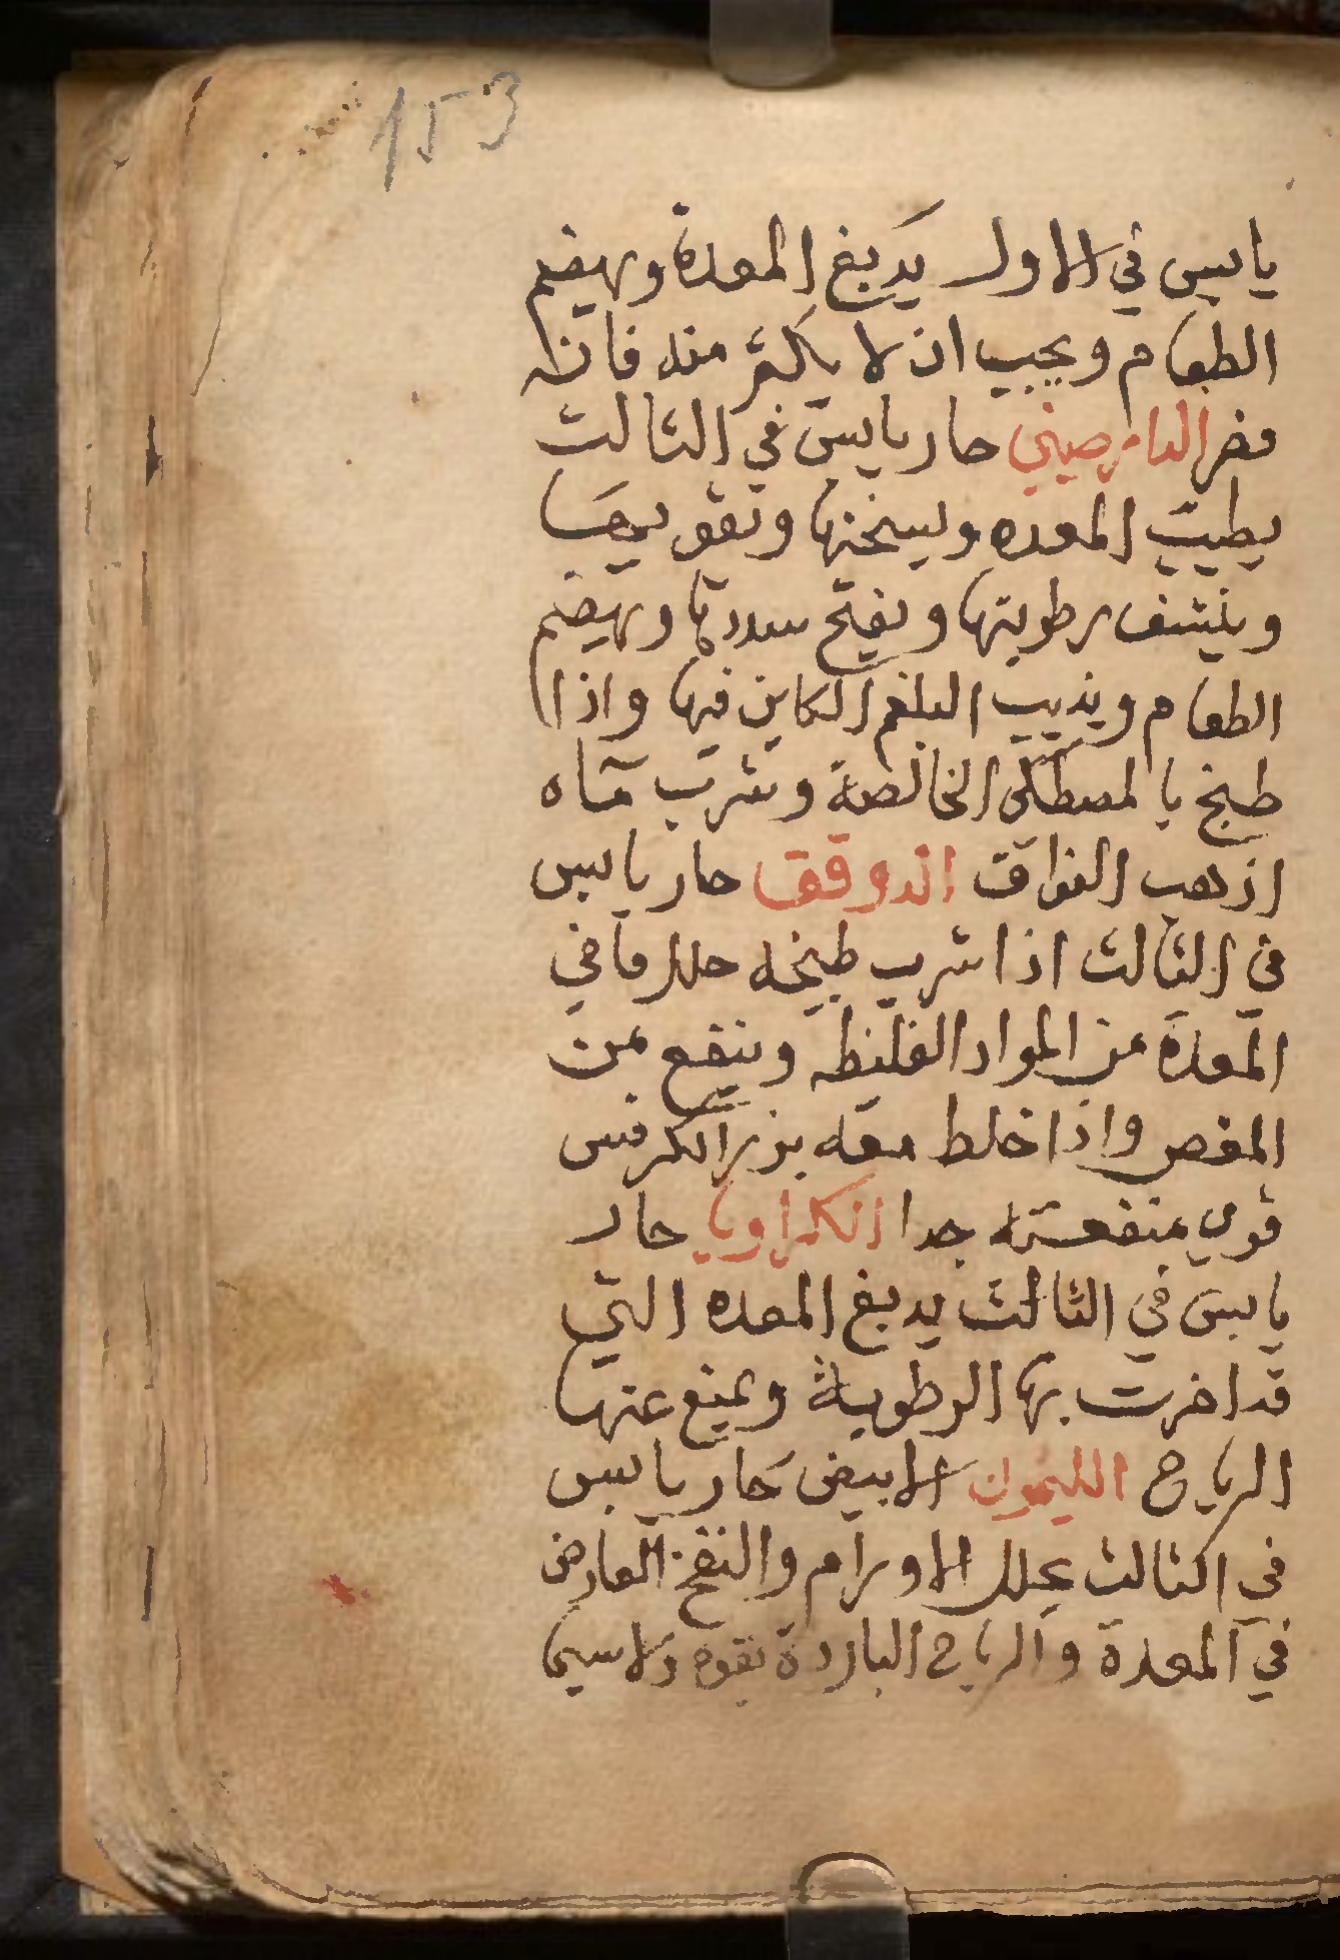 153
يابس في الاول يدبغ المعدة ويهضم
الطعام ويجب ان لا يكثر منه فانه
مضر الدارصيني حار يابس في الثالث
يطيب المعده ويسخنها وتقويها
وينشف رطوبتها ويفتح سددها ويهضم
الطعام ويذيب البلغم الكاين فيها واذا
طبخ بالمصطكى الخالصة وشرب مآه
اذهب الفواق الدوقق حار يابس
في الثالث اذا شرب طبيخه حلل ما في
المعدة من المواد الغليظه وينفع من
المغص واذا خلط معه بزر الكرفس
قوي منفعته جدا الكراويا حار
يابس في الثالث يدبغ المعده التي
قد اضرت بها الرطوبة ويمنع عنها
الرياح الليمون الابيض حار يابس
في الثالث يحلل الاورام والنفخ العارض
في المعدة والرياح الباردة بقوه ولا سيما